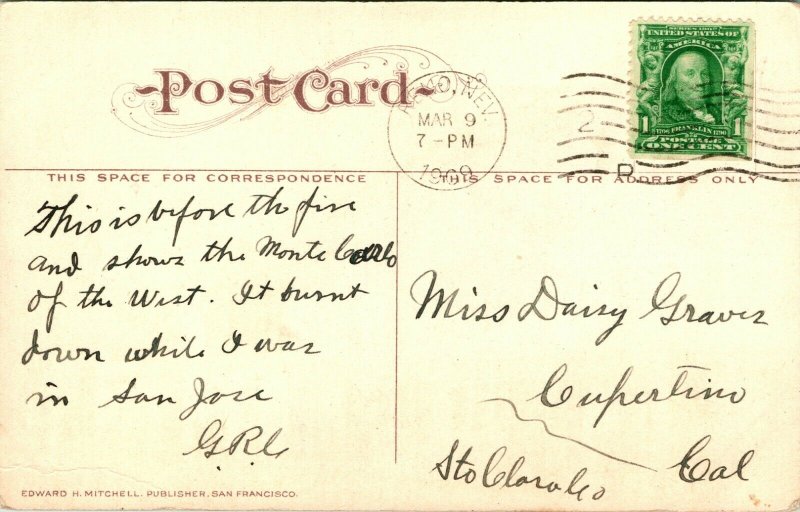 Post Card
RENO, NEV.
MAR 9
7-PM
1909
2
R
SERIES 1902
UNITED STATES OF
AMERICA
1 1706 FRANKLIN 1790 1
POSTAGE
ONE CENT
THIS SPACE FOR CORRESPONDENCE
THIS SPACE FOR ADDRESS ONLY
This is before the fire
and shows the Monte Carlo
of the West. It burnt
down while I was
in San Jose
G.R.G.
Miss Daisy Graves
Cupertino
Sta Clara Co
Cal
EDWARD H. MITCHELL, PUBLISHER, SAN FRANCISCO.